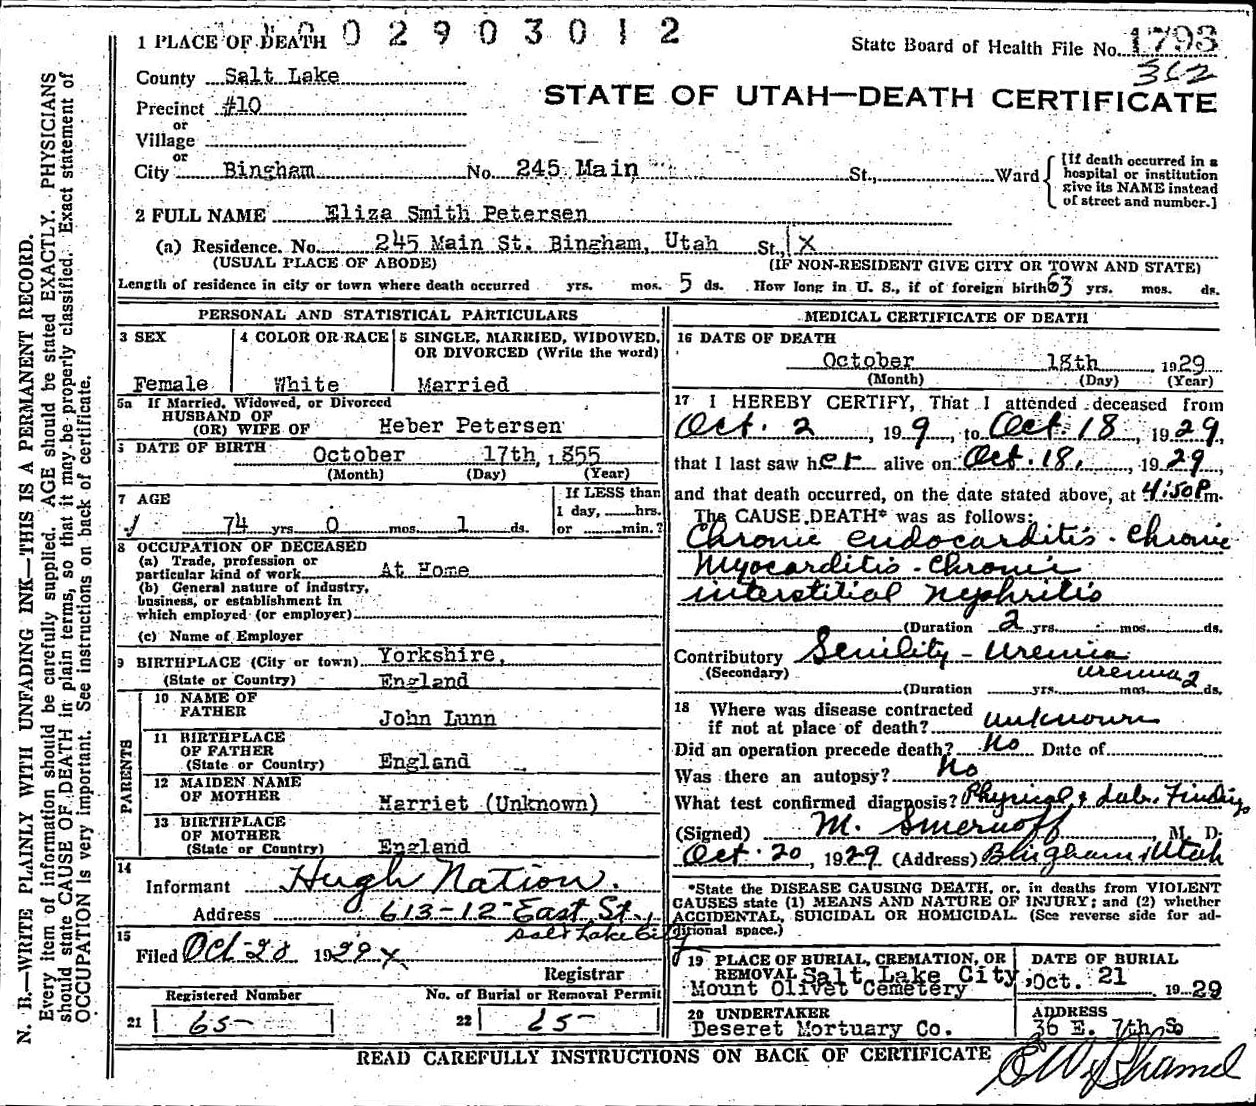 0 0 2 9 0 3 0 1 2
1 PLACE OF DEATH
State Board of Health File No. 1793
362
County Salt Lake
STATE OF UTAH—DEATH CERTIFICATE
Precinct #10
or
Village
or
City Bingham No. 245 Main St., Ward
[If death occurred in a hospital or institution give its NAME instead of street and number.]
2 FULL NAME Eliza Smith Petersen
(a) Residence. No. 245 Main St. Bingham, Utah St., X
(USUAL PLACE OF ABODE) (IF NON-RESIDENT GIVE CITY OR TOWN AND STATE)
Length of residence in city or town where death occurred yrs. mos. 5 ds. How long in U. S., if of foreign birth 63 yrs. mos. ds.
PERSONAL AND STATISTICAL PARTICULARS
3 SEX
Female
4 COLOR OR RACE
White
5 SINGLE, MARRIED, WIDOWED, OR DIVORCED (Write the word)
Married
5a If Married, Widowed, or Divorced
HUSBAND OF
(OR) WIFE OF Heber Petersen
6 DATE OF BIRTH
October 17th, 1855
(Month) (Day) (Year)
7 AGE
74 yrs 0 mos. 1 ds.
If LESS than
1 day, hrs.
or min.?
8 OCCUPATION OF DECEASED
(a) Trade, profession or
particular kind of work At Home
(b) General nature of industry,
business, or establishment in
which employed (or employer)
(c) Name of Employer
9 BIRTHPLACE (City or town) Yorkshire,
(State or Country) England
PARENTS
10 NAME OF
FATHER John Lunn
11 BIRTHPLACE
OF FATHER
(State or Country) England
12 MAIDEN NAME
OF MOTHER Harriet (Unknown)
13 BIRTHPLACE
OF MOTHER
(State or Country) England
14
Informant Hugh Nation.
Address 613-12 East St.,
Salt Lake City
15
Filed Oct-28 1929 x
Registrar
Registered Number
21 65-
No. of Burial or Removal Permit
22 65-
MEDICAL CERTIFICATE OF DEATH
16 DATE OF DEATH
October 18th 1929
(Month) (Day) (Year)
17 I HEREBY CERTIFY, That I attended deceased from
Oct. 2, 19 9, to Oct 18, 1929,
that I last saw her alive on Oct. 18, 1929,
and that death occurred, on the date stated above, at 4:50 P m.
The CAUSE DEATH* was as follows:
Chronic endocarditis - Chronic
Myocarditis - Chronic
interstitial Nephritis
(Duration 2 yrs. mos. ds.
Contributory Senility - Uremia
(Secondary) uremia 2
(Duration yrs. mos. ds.
18 Where was disease contracted
if not at place of death? unknown
Did an operation precede death? No Date of
Was there an autopsy? No
What test confirmed diagnosis? Physical & Lab. Findings
(Signed) M. Smernoff M. D.
Oct. 20, 1929 (Address) Bingham, Utah
*State the DISEASE CAUSING DEATH, or, in deaths from VIOLENT
CAUSES state (1) MEANS AND NATURE OF INJURY; and (2) whether
ACCIDENTAL, SUICIDAL OR HOMICIDAL. (See reverse side for ad-
ditional space.)
19 PLACE OF BURIAL, CREMATION, OR
REMOVAL Salt Lake City,
Mount Olivet Cemetery
DATE OF BURIAL
Oct. 21 1929
20 UNDERTAKER
Deseret Mortuary Co.
ADDRESS
36 E. 7th So
READ CAREFULLY INSTRUCTIONS ON BACK OF CERTIFICATE
N. B.—WRITE PLAINLY WITH UNFADING INK—THIS IS A PERMANENT RECORD.
Every item of information should be carefully supplied. AGE should be stated EXACTLY. PHYSICIANS
should state CAUSE OF DEATH in plain terms, so that it may be properly classified. Exact statement of
OCCUPATION is very important. See instructions on back of certificate.